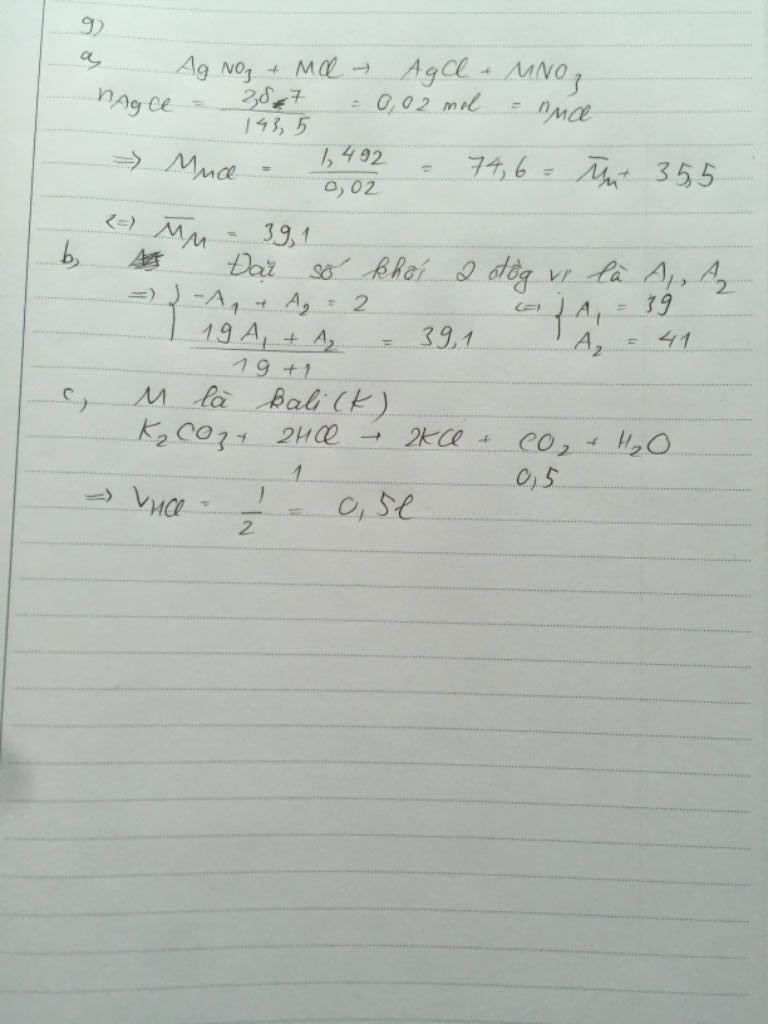 9)
a, AgNO3 + MCl → AgCl + MNO3
nAgCl = 2,87 / 143,5 = 0,02 mol = nMCl
=> MMCl = 1,492 / 0,02 = 74,6 = M̄M + 35,5
<=> M̄M = 39,1
b, Đặt số khối 2 đồg vị là A1, A2
=> { -A1 + A2 = 2 <=> { A1 = 39
19A1 + A2 / 19 + 1 = 39,1 A2 = 41
c, M là kali (K)
K2CO3 + 2HCl → 2KCl + CO2 + H2O
1 0,5
=> VHCl = 1 / 2 = 0,5l